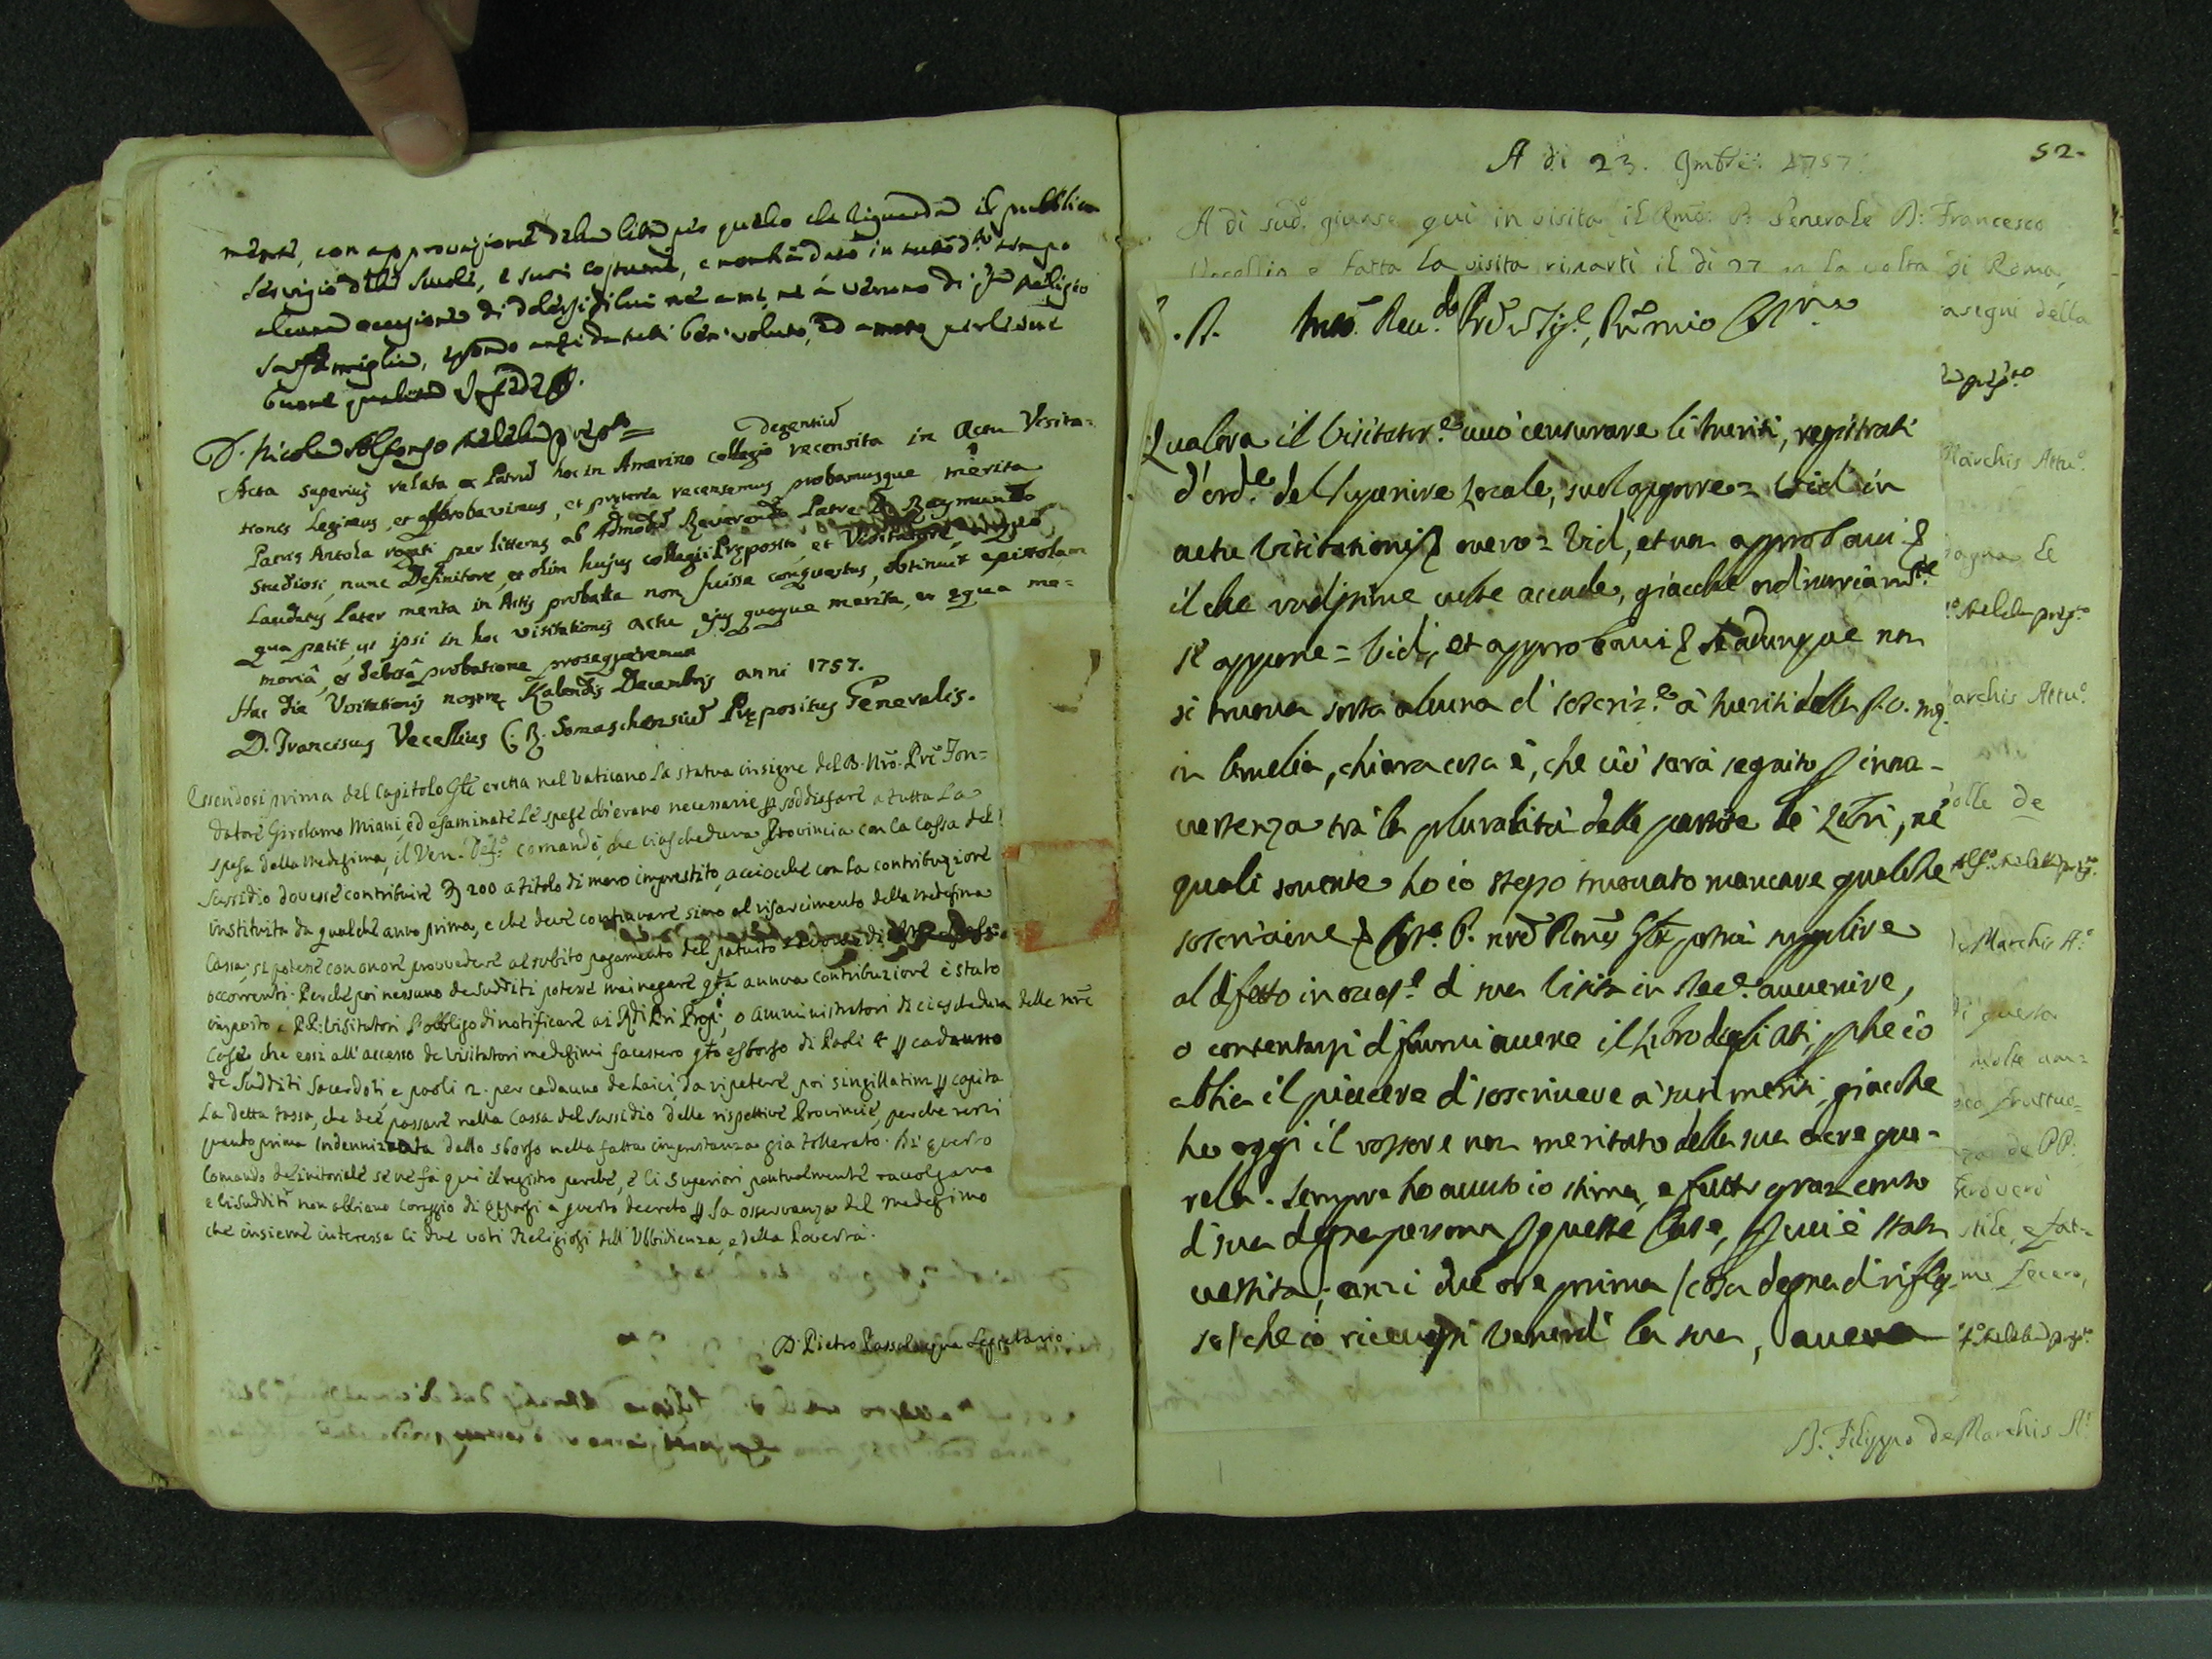 mente, con approvazione della Città per quello che riguarda il pubblico
servigio delle Scuole, e suoi costumi, e non hà dato in tutto d.to tempo
alcuna occasione di dolersi di lui nè a me, nè à veruno di q.ta Religiosa
famiglia, essendo anzi da tutti ben voluto, ed amato per le sue
buone qualità In fede
D. Nicola Alfonso prep.to
degentiu
Acta superius relata a Patru hoc in Amerino collegio recensita in Actu Visita-
tionis legimus, et approbavimus, et preterea recensemus probamusque merita
Patris Antola rogati per litteras ab Admodu Reverendo Patre D. Raymundo
Studiosi, nunc Definitore, et olim hujus collegii Preposito, et
Laudatus Pater merita in Actis probatta non fuisse conquestus, obtinuit epistolam
qua petit, ut ipsi in hoc visitationis actu ejus quoque merita, ex equa me-
moriâ, et debitâ probatione prosequeremur
Hac die Visitationis nostre Kalendis Decembris anni 1757.
D. Franciscus Vecellius C. R. Somaschensiu Prepositus Generalis.
Essendosi prima del Capitolo Gle eretta nel Vaticano la statua insigne del B. Nro. Pre Fon-
datore Girolamo Miani, ed esaminate le spese ch'erano necessarie p soddisfare a tutta la
spesa della medesima, il Ven. Def.o comandò, che ciascheduna Provincia con la Cassa del
Sussidio dovesse contribuire 200 a titolo di mero imprestito, acciocché con la contribuzione
instituita da qualche anno prima, e che deve continuare sino al risarcimento della medesima
Cassa, si potesse con onore provvedere al subito pagamento del patuito
occorrenti. Perché poi nessuno de Sudditi potesse mai negare qta annua contribuzione è stato
imposto a PP: Visitatori l'obbligo di notificare ai Rdi Pri Prop.i, o Amministratori di ciascheduna delle nre
Case, che essi all'accesso de Visitatori medesimi facessero qto esborso di Paoli 4 p cadauno
de Sudditi Sacerdoti, e paoli 2. per cadauno de Laici, da ripetere poi singillatim p capita
La detta tassa, che deè passare nella Cassa del Sussidio delle rispettive Provincie, perche resti
quanto prima Indennizzata dallo sborso nella fatta cingrestanza già tollerato. Di questo
Comando definitoriale se ne fà qui il registro perché, e li Superiori pontualmente raccolgano
e li Sudditi non abbiano coraggio di opporsi a questo decreto p la osservanza del medesimo
che insieme interessa li due voti Religiosi dell'Ubbidienza, e della Povertà.
D. Pietro Passalacqua Segretario
52.
A di 23. 9mbre: 1757.
A di sud.o giunse qui in visita il Rmo: P. Generale D: Francesco
Vecellio e fatta la visita riparti il di 27 la volta di Roma,
asegni della
.P. Rev.do Pre
prep.to
Qualora il Visitator.e vuò censurare li meriti, registrati
d'ord.e del Superiore Locale, suol apporre = Vidi in
actu Visitationis overo = Vidi, et non approbavi
il che radissime volte accade, giacche ordinariam.te
si appone = Vidi, et approbavi Se adunque non
si truova sorta alcuna d' soscriz.e à meriti della P. V.
in Amelia, chiara cosa è, che ciò sarà seguito p inna-
vertenza trà la pluralità delle partite de' Libri, nè
quali sovente ho io stesso truovato mancare qualche
soscrizione. P. nro Rmo Gle potrà supplire
al difetto in occas.e d sua Visita in avvenire,
o contentarsi d farmi avere il Libro degli Atti, p che io
abbia il piacere d soscrivere a suoi meriti, giacche
ho oggi il rossore non meritato della sua acre que-
rela. Sempre ho avuto io stima, e fatto gran conto
d sua degna persona p queste Case, p cui è stata
vestita; anzi due ore prima (cosa degna di rifles-
so) che io ricevessi Venerdì la sua, aveva
Marchis Attu.o
prep.to
Marchis Attu.o
olle de
De Marchis A.o
di questa
Molte
de PP.
me fecero,
D. Filippo De Marchis A.o